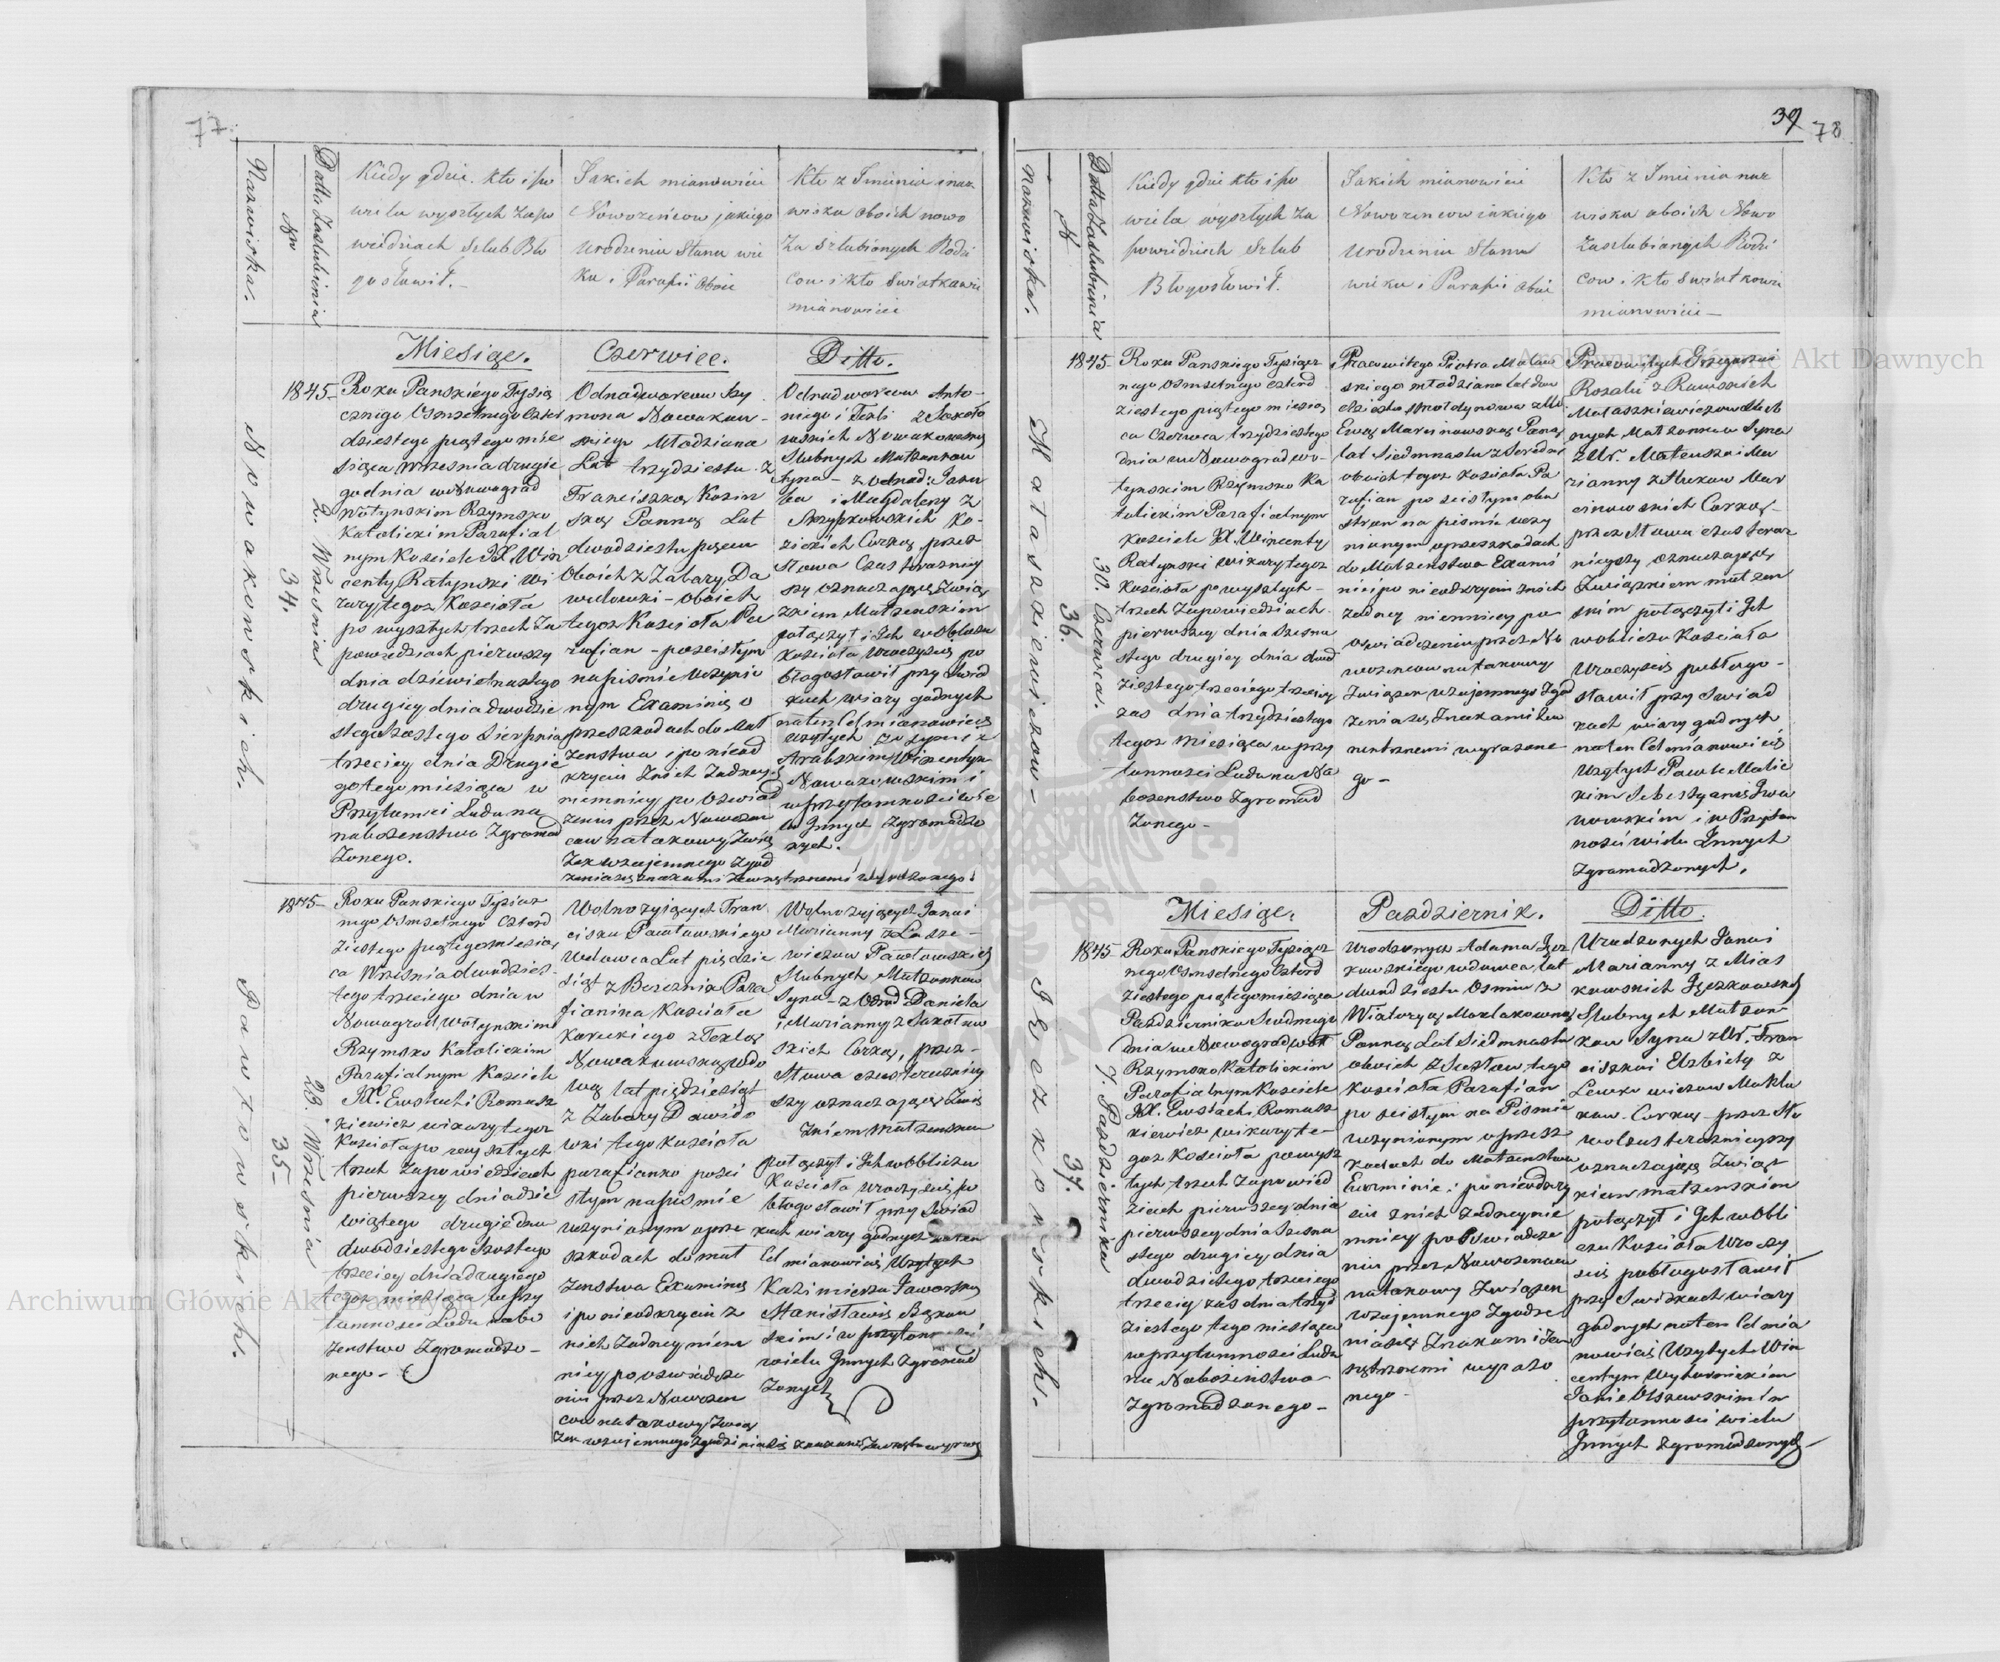 77.
Nazwiska.
№
Datta Zaslubinia
Kiedy gdzie kto i po
wielu wyszłych zapo
wiedziach Szlub Bło
gosławił.
Jakich mianowicie
Nowozeńcow jakiego
Urodzenia Stanu wie
ku i Parafii oboie
Kto z Jmienia i naz
wiska oboich nowo
Zaszlubionych Rodzi
cow i kto Swiatkowie
mianowicie
Miesiąc.
Czerwiec.
Ditto.
Nowakowskich.
34.
2. Wrzesnia
1845-
Roku Panskiego Tysiącz
cznego Osmsetnego Czter
dziestego piątego mie
siąca Wrzesnia drugie
go dnia w Nowograd
Wołynskim Rzymsko
Katolickim Parafial
nym Kosciele JX. Win
centy Ratynski Wi
kary tegoz Kosciola
po wyszłych trzech Za
powiedziach pierwszey
dnia dziewietnastego
drugiey dnia dwudzie
stego szostego Sierpnia
trzeciey dnia Drugie
go tego miesiąca w
Przytomnosci Ludu na
nabozenstwo Zgromad
zonego.
Odnodworcow Szy
mona Nowakow-
skiego Młodziana
Lat trzydziestu z
Franciszką Kozin
ską Panną Lat
dwudziestu pięciu
Oboich z Zabary Da
widowki - oboich
tegoz Kosciola Pa
rafian - po scisłym
na pismie Uczynio
nym Examinie o
przeszkodach do Mał
zenstwa i po nieod
kryciu Znich Zadney
niemniey po Oswiad
zeniu przez Nowozen
cow na takowy Zwią
zek wzajemnego Zgod
zenia się znakami zewnętrznemi wyrazonego.
Odnodworcow Anto-
niego i Tekli z Sokoło
wskich Nowakowskich
Slubnych Małzonkow
Syna - z Odnod: Jaku
ba i Magdaleny z
Skrzypkowskich Ko-
zickich Corką przez
Słowa Czas teraznieys
szy oznaczające Związ
kiem Małzenskim
połączył i Ich w Obliczu
Kosciola Uroczyscie po
błogosławił przy Swiad
kach wiary godnych
na ten Cel mianowicie
Uzytych
Arabskim Wincentym
Nowakowskim i
w przytomnosci wie
lu Jnnych Zgromadzo
nych.
Pawłowskich.
35-
23. Wrzesnia
1845-
Roku Panskiego Tysiącz
nego Osmsetnego Czterd
ziestego piątego miesią
ca Wrzesnia dwudzies
tego trzeciego dnia w
Nowograd Wołynskim
Rzymsko Katolickim
Parafialnym Kosciele
JX. Eustachi Romasz
kiewicz wikary tegoz
Kosciola po wyszłych
trzech Zapowiedziach
pierwszey dnia dzie
wiątego drugiey dnia
dwudziestego szostego
trzeciey dnia drugiego
tegoz miesiąca w Przy
tomnosci Ludu nabo
zenstwo Zgromadzo-
nego -
Wolno zyiących Fran
ciszka Pawłowskiego
Wdowca Lat pięcdzie
siąt z Berezniak Para
fianina Kosciola
Koreckiego z Teklą
Nowakowską Wdo
wą lat pięcdziesiąt
z Zabary Dawido
wki tego Kosciola
parafianką po sci
słym na pismie
uczynionym o prze
szkodach do mał
zenstwa Examinie
i po nieodkryciu z
nich Zadney niem
niey po oswiadcze
niu przez Nowozen
cow na takowy Zwią
zek wzajemnego Zgodzenia się znakami Zewnętrz wyraz
Wolno zyiących Jana i
Marianny z Łasze-
wiczow Pawłowskich
Slubnych Małzonkow
Syna - z Odnod Daniela
i Marianny z Sokołow
skich Corką, przez-
Słowa czas teraznieys
szy oznaczające Zwią
zkiem Małzenskim
połączył i Ich w Obliczu
Kosciola Uroczyscie po
błogosławił przy Swiad
kach wiary godnych na ten
Cel mianowicie Uzytych
Kazimierzu Jaworsky
Stanisławie Bączkow
skim i w przytomnosci
wielu Jnnych Zgromad
zonych
39
78
Nazwiska.
№
Datta Zaslubinia
Kiedy gdzie kto i po
wielu wyszłych Za
powiedziach Szlub
Błogosławił.
Jakich mianowicie
Nowozencow iakiego
Urodzenia Stanu
wieku i Parafii oboie
Kto z Jmienia naz
wiska oboich Nowo
Zaszlubionych Rodzi
cow i kto Swiatkowie
mianowicie -
Mataszkiewiczow-
36.
30. Czerwca.
1845-
Roku Panskiego Tysiącz
nego Osmsetnego czterd
ziestego piątego miesią
ca Czerwca trzydziestego
dnia w Nowograd wo-
łynskim Rzymsko Ka
tolickim Parafialnym
Kosciele JX. Wincenty
Ratynski wikary tegoz
Kosciola po wyszłych -
trzech Zapowiedziach
pierwszey dnia szesna
stego drugiey dnia dwud
ziestego trzeciego trzeciey
zas dnia trzydziestego
tegoz Miesiąca w przy
tomnosci Ludu na Na
bozenstwo Zgromad
zonego -
Pracowitego Piotra Matasz
skiego młodziana Lat dwa
dziestu
Ewą Marcinowską Panną
lat Siedmnastu z Seredni
oboich tegoz Kosciola Pa
rafian po scisłym obu
stron na pismie uczy
nionym o przeszkodach
do Małzenstwa Exami
nie i po nieodkryciu Znich
zadney niemniey po
oswiadczeniu przez No
wozencow na takowy
Związek wzajemnego Zgod
zenia się Znakami Zew
nętrznemi wyrazone
go -
Pracowitych Grzegorza i
Rozalii z Rawskich
Mataszkiewiczow Slub
nych Małzonkow Syna
z Ur. Mateusza i Ma
rianny z Hukow Mar
cinowskich Corką -
przez Słowa czas teraz
nieyszy oznaczające
Związkiem małzen
skim połączył i Ich
w obliczu Kosciola
Uroczyscie pobłogo-
sławił przy Swiad
kach wiary godnych
na ten Cel mianowicie
Uzytych Pawle Malic
kim Sebestyanie Jwa
nowskim i w Przytom
nosci wielu Jnnych
Zgromadzonych.
Miesiąc.
Pazdziernik.
Ditto.
Jeczkowskich.
37.
7. Pazdziernika
1845-
Roku Panskiego Tysiącz
nego Osmsetnego Czterd
ziestego piątego miesiąca
Pazdziernika Siodmego
dnia w Nowograd Woł
Rzymsko Katolickim
Parafialnym Kosciele
JX. Eustachi Romasz
kiewicz wikary te-
goz Kosciola po wysz
łych trzech Zapowied
ziach pierwszey dnia
pierwszey dnia Szesna
stego drugiey dnia
dwudziestego trzeciego
trzeciey zas dnia trzyd
ziestego tego miesiąca
w przytomnosci Ludu
na Nabozenstwo
Zgromadzonego -
Urodzonych Adama Jecz
kowskiego wdowca Lat
dwudziestu Osmiu z
Wiktoryą Moklakowną
Panną Lat Siedmnastu
oboich z Susłow tego
Kosciola Parafian
po scisłym na Pismie
uczynionym o przesz
kodach do Małzenstwa
Examinie i po nieodkry
ciu znich zadney nie
mniey po Oswiadcze
niu przez Nowozencow
na takowy Związek
wzajemnego Zgodze
nia się Znakami Zew
nętrznemi wyrazo
nego -
Urodzonych Jana i
Marianny z Mias
kowskich Jeczkowskich
Slubnych Małzon-
kow Syna z Ur. Fran
ciszka i Elzbiety z
Lewkowiczow Mokla
kow - Corką - przez Sło
wa czas teraznieyszy
oznaczające Związ
kiem małzenskim
połączył i Ich w Obli
czu Kosciola Uroczy
scie pobłogosławił
przy Swiadkach wiary
godnych na ten Cel mia
nowicie Uzytych Win
centym
Janie Olszewskim i w
przytomnosci wielu
Jnnych zgromadzonych -
Archiwum Główne Akt Dawnych
Archiwum Główne Akt Dawnych